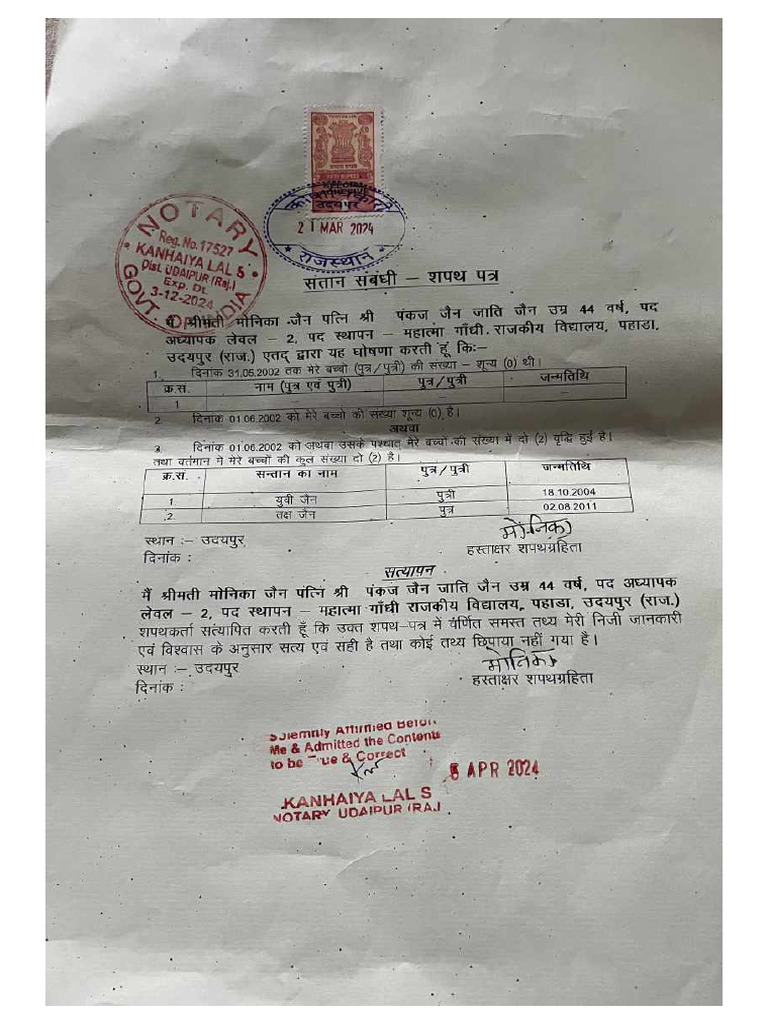 उदयपुर
21 MAR 2024
राजस्थान
NOTARY
Reg. No. 17527
KANHAIYA LAL S
Dist. UDAIPUR (Raj.)
Exp. Dt.
3-12-2024
GOVT. OF INDIA
संतान संबंधी – शपथ पत्र
मैं श्रीमती मोनिका जैन पत्नि श्री पंकज जैन जाति जैन उम्र 44 वर्ष, पद
अध्यापक लेवल – 2, पद स्थापन – महात्मा गाँधी राजकीय विद्यालय, पहाडा,
उदयपुर (राज.) एतद् द्वारा यह घोषणा करती हूं कि:–
1. दिनांक 31.05.2002 तक मेरे बच्चो (पुत्र/पुत्री) की संख्या – शून्य (0) थी।
क्र.स. नाम (पुत्र एवं पुत्री) पुत्र/पुत्री जन्मतिथि
1 – – –
2. दिनांक 01.06.2002 को मेरे बच्चो की संख्या शून्य (0) है।
अथवा
3. दिनांक 01.06.2002 को अथवा उसके पश्चात मेरे बच्चो की संख्या में दो (2) वृद्धि हुई है।
तथा वर्तमान मे मेरे बच्चों की कुल संख्या दो (2) है।
क्र.सं. सन्तान का नाम पुत्र/पुत्री जन्मतिथि
1 युवी जैन पुत्री 18.10.2004
2. तक्ष जैन पुत्र 02.08.2011
स्थान :– उदयपुर मोनिका
दिनांक : हस्ताक्षर शपथग्रहिता
सत्यापन
मैं श्रीमती मोनिका जैन पत्नि श्री पंकज जैन जाति जैन उम्र 44 वर्ष, पद अध्यापक
लेवल – 2, पद स्थापन – महात्मा गाँधी राजकीय विद्यालय, पहाडा, उदयपुर (राज.)
शपथकर्ता सत्यापित करती हूँ कि उक्त शपथ–पत्र में वर्णित समस्त तथ्य मेरी निजी जानकारी
एवं विश्वास के अनुसार सत्य एवं सही है तथा कोई तथ्य छिपाया नहीं गया है।
स्थान :– उदयपुर मोनिका
दिनांक : हस्ताक्षर शपथग्रहिता
Solemnly Affirmed Before
Me & Admitted the Contents
to be True & Correct
5 APR 2024
KANHAIYA LAL S
NOTARY UDAIPUR (RAJ.